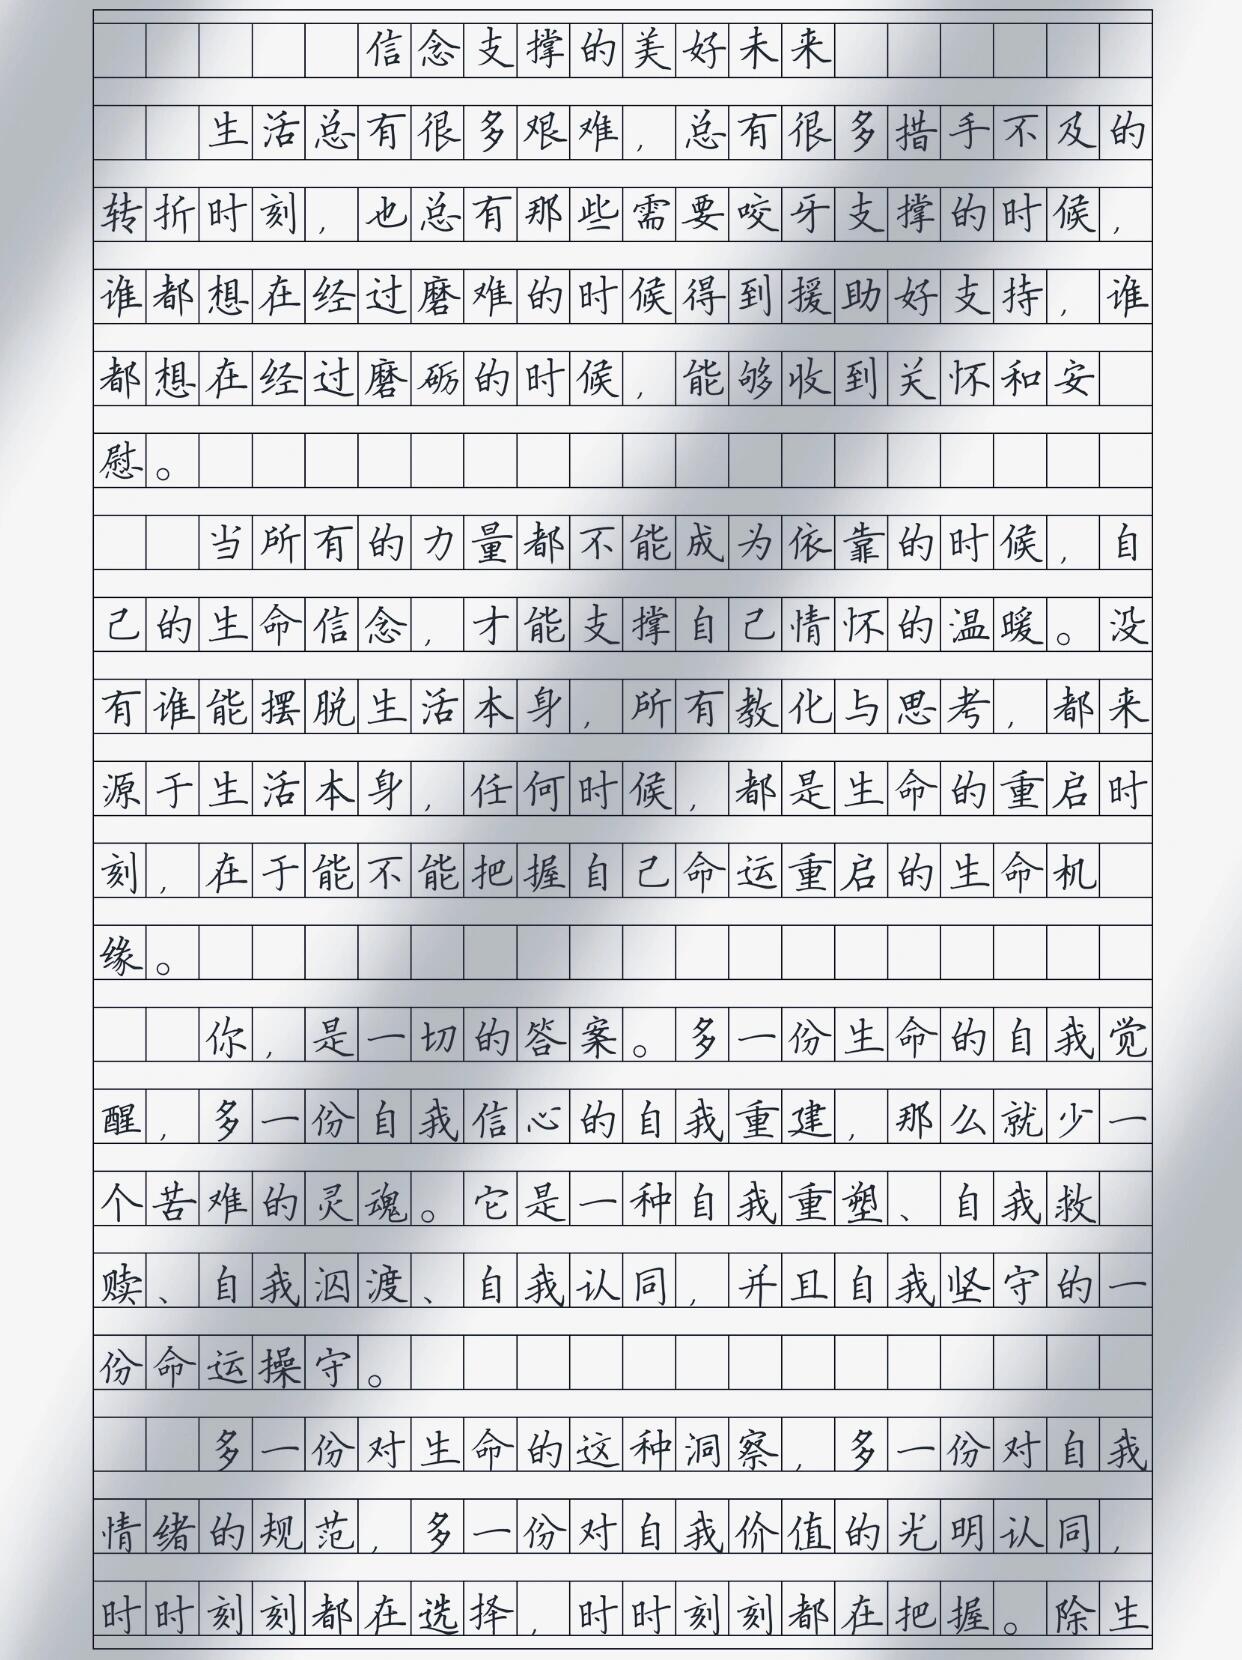 信念支撑的美好未来
生活总有很多艰难，总有很多措手不及的
转折时刻，也总有那些需要咬牙支撑的时候，
谁都想在经过磨难的时候得到援助好支持，谁
都想在经过磨砺的时候，能够收到关怀和安
慰。
当所有的力量都不能成为依靠的时候，自
己的生命信念，才能支撑自己情怀的温暖。没
有谁能摆脱生活本身，所有教化与思考，都来
源于生活本身，任何时候，都是生命的重启时
刻，在于能不能把握自己命运重启的生命机
缘。
你，是一切的答案。多一份生命的自我觉
醒，多一份自我信心的自我重建，那么就少一
个苦难的灵魂。它是一种自我重塑、自我救
赎、自我泅渡、自我认同，并且自我坚守的一
份命运操守。
多一份对生命的这种洞察，多一份对自我
情绪的规范，多一份对自我价值的光明认同，
时时刻刻都在选择，时时刻刻都在把握。除生